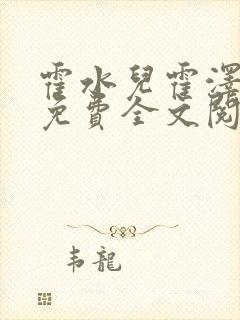 霍水兒霍澤
免費全文閱
韦龍